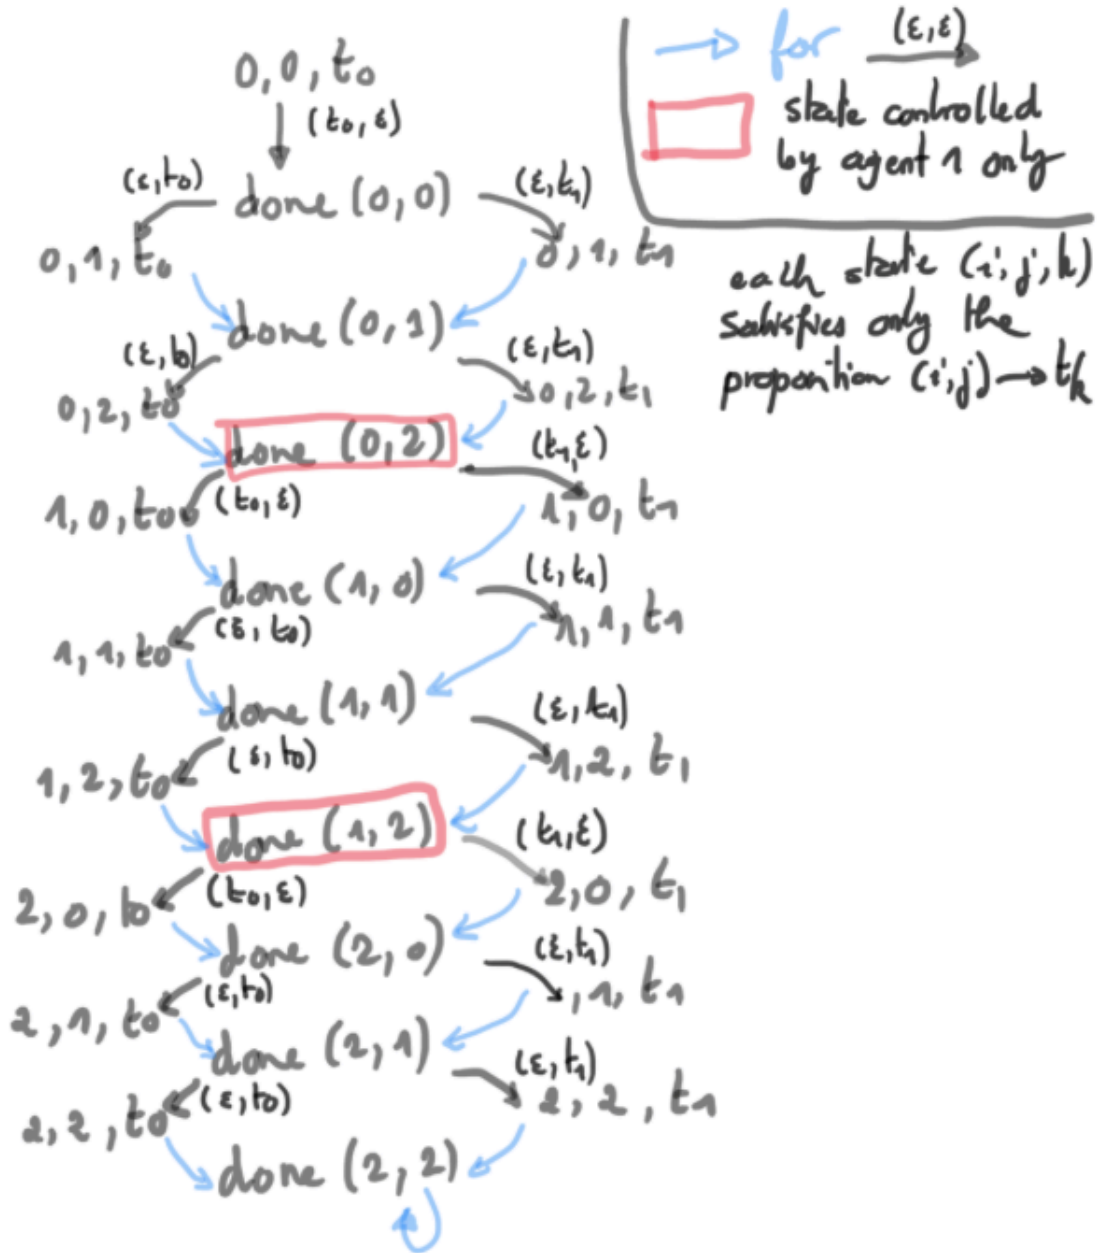 0, 0, t0
(t0, ε)
(ε, t0) done (0, 0) (ε, t1)
0, 1, t0 0, 1, t1
done (0, 1)
(ε, t0) (ε, t1)
0, 2, t0 0, 2, t1
done (0, 2) (t1, ε)
1, 0, t0 (t0, ε) 1, 0, t1
done (1, 0) (ε, t1)
1, 1, t0 (ε, t0) 1, 1, t1
done (1, 1) (ε, t1)
1, 2, t0 (ε, t0) 1, 2, t1
done (1, 2) (t1, ε)
2, 0, t0 (t0, ε) 2, 0, t1
done (2, 0) (ε, t1)
2, 1, t0 (ε, t0) , 1, t1
done (2, 1) (ε, t1)
2, 2, t0 (ε, t0) 2, 2, t1
done (2, 2)
for (ε, ε)
state controlled
by agent 1 only
each state (i, j, k)
satisfies only the
proposition (i, j) → tk